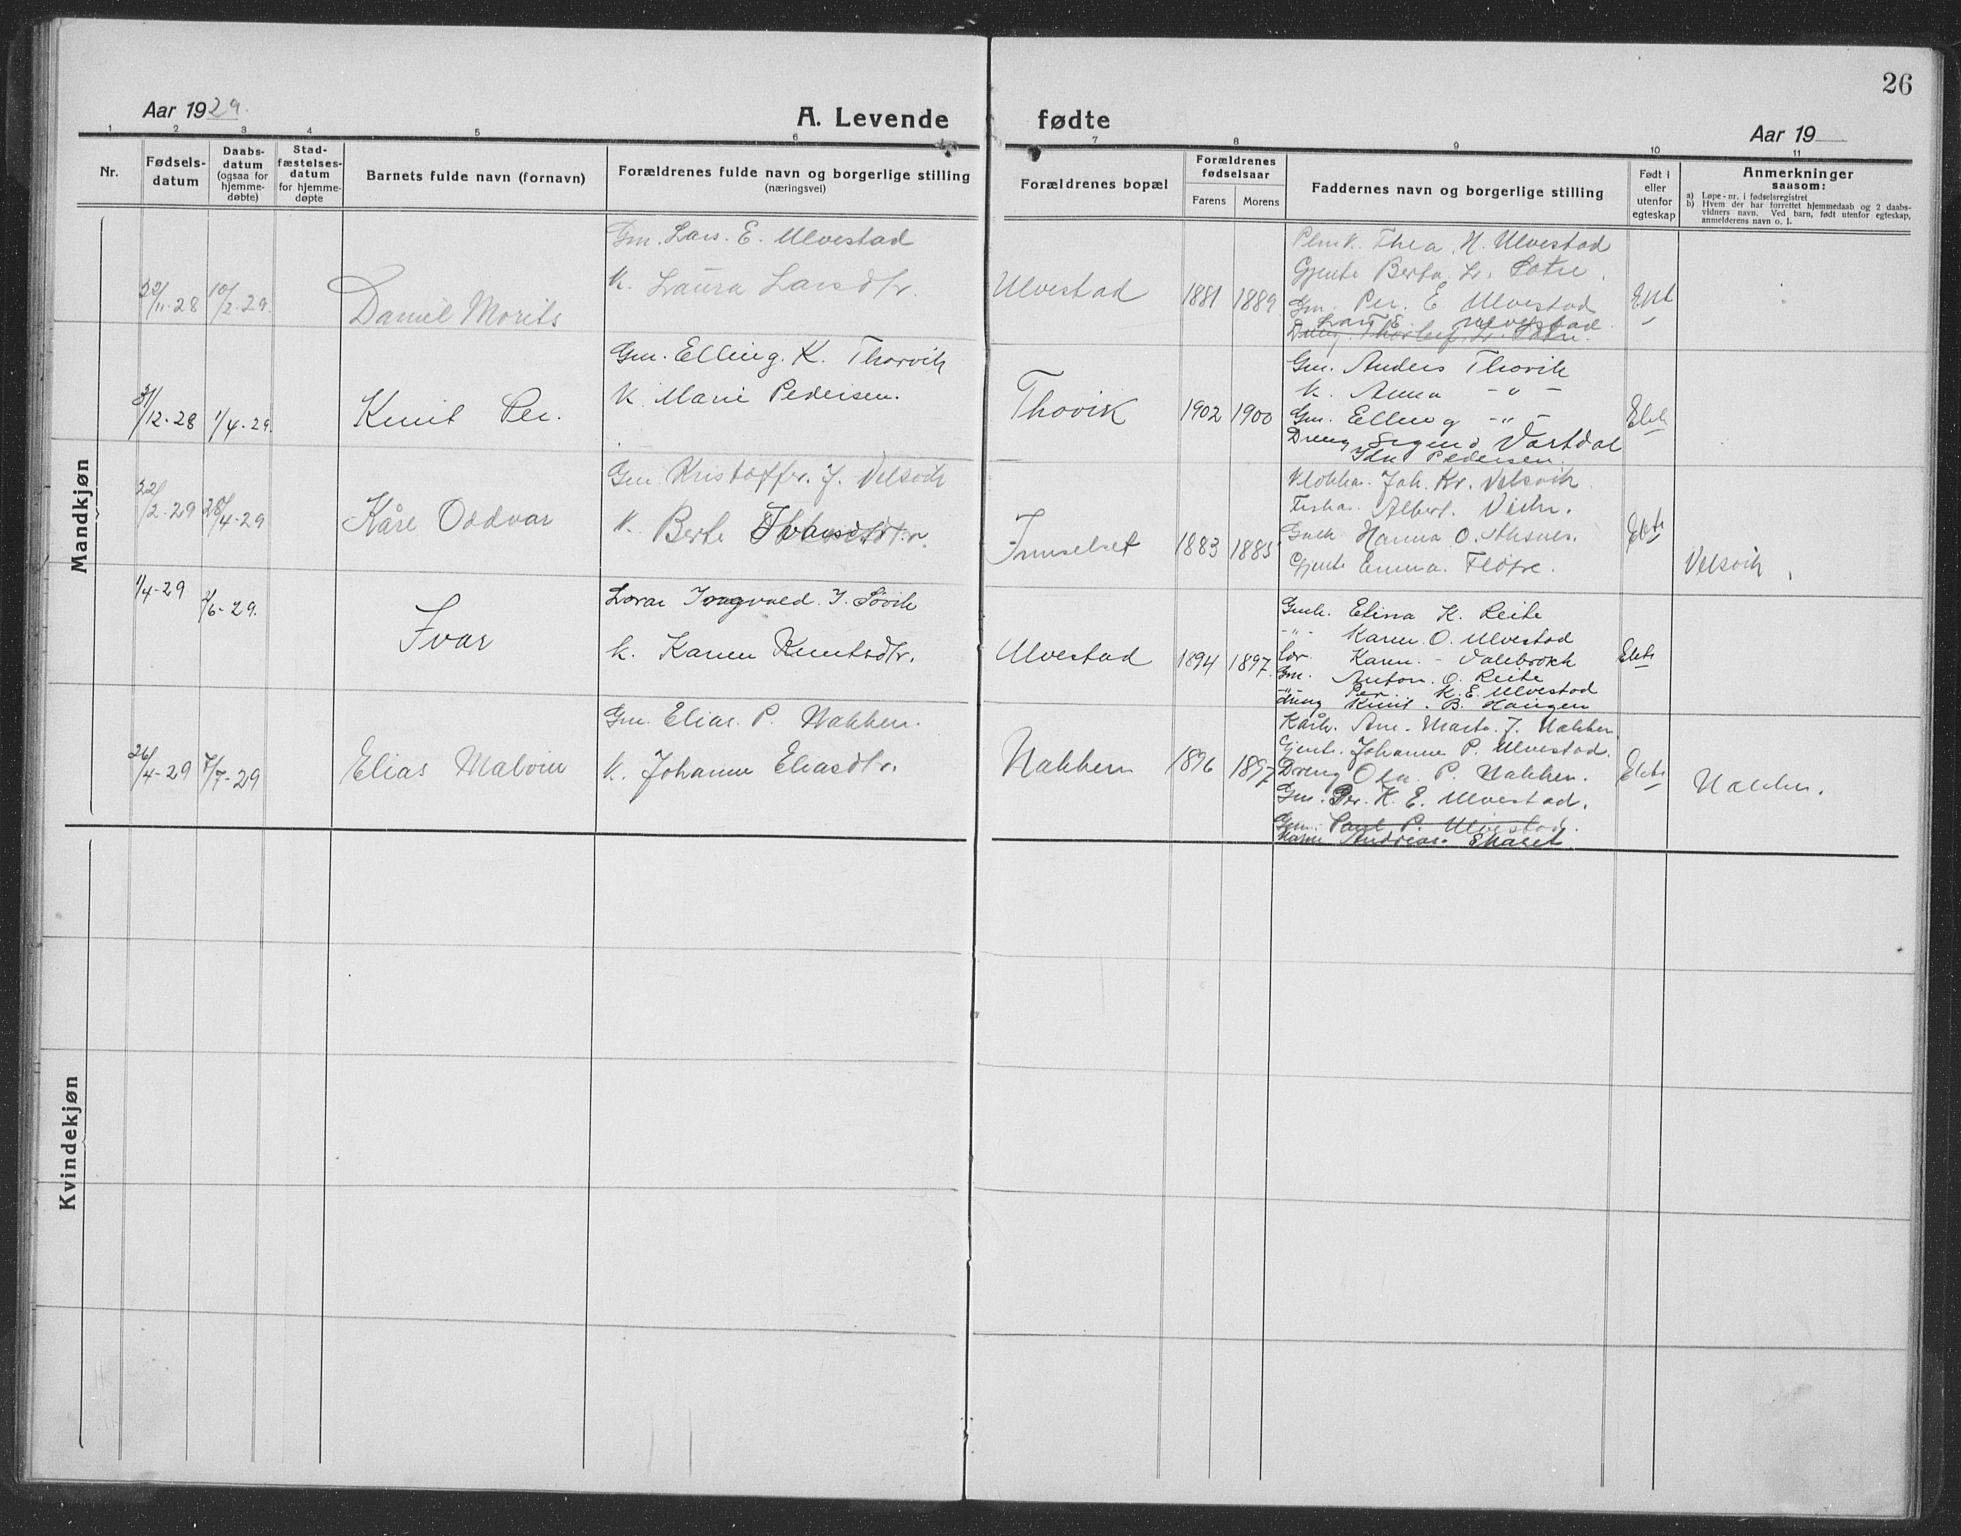 26
Aar 1929.
A. Levende fødte
Aar 19
1 2 3 4 5 6 7 8 9 10 11
Nr.
Fødsels-
datum
Daabs-
datum
(ogsaa for
hjemme-
døbte)
Stad-
fæstelses-
datum
for hjemme-
døpte
Barnets fulde navn (fornavn)
Forældrenes fulde navn og borgerlige stilling
(næringsvei)
Forældrenes bopæl
Forældrenes
fødselsaar
Farens Morens
Faddernes navn og borgerlige stilling
Født i
eller
utenfor
egteskap
Anmerkninger
saasom:
a) Løpe-nr. i fødselsregistret
b) Hvem der har forrettet hjemmedaab og 2 daabs-
vidners navn. Ved barn, født utenfor egteskap,
anmelderens navn o. l.
Mandkjøn
/11-28 10/2-29.
Daniel Morits
Gm. Lars. E. Ulvestad
K. Laura Larsdtr.
Ulvestad
1881 1889
Thea. H. Ulvestad
Gjente Berta. L. Sætre.
Gm. Per. E. Ulvestad
Lars E. Ulvestad.
Dreng. Thorleif. L. Sætre.
Ekt
31/12-28 1/4-29.
Knut Per.
Gm. Elling. K. Thorvik
K. Marie Pedersen.
Thovik
1902 1900
Gm. Anders Thovik
K. Anna -"-
Gm. Elling -"-
Dreng Vartdal
Pedersen.
Ekte
22/2-29 28/4-29
Kåre Oddvar
Gm. Kristoffer. J. Velsvik
K. Berte
1883 1885
Joh. Kr. Velsvik
Albert.
Hanna O. Aasnes.
Gjente Emma. Fløtre.
Ekte
Velsvik.
1/4-29 2/6-29.
Ivar
Lærar Ingvald. J. Søvik
K. Karen Knutsdtr.
Ulvestad
1894 1897.
Gmk. Elina K. Reite
-"- Karen O. Ulvestad
Lær. Karen. - Valebrokk
Gm. Anton. O. Reite
-"- Per. K. E. Ulvestad
dreng Knut. B. Haugen
Ekte
26/4-29 7/7-29
Elias Malvin
Gm. Elias. P. Nakken.
K. Johanne Eliasdtr.
Nakken
1896 1897
Kårk. Ane-Marta. J. Nakken
Gjente. Johanne P. Ulvestad.
Dreng Ola. P. Nakken.
Gm. Per. K. E. Ulvestad.
Gm. Paul P. Ulvestad.
Andreas Ekaset
Ekte
Nakken.
Kvindekjøn